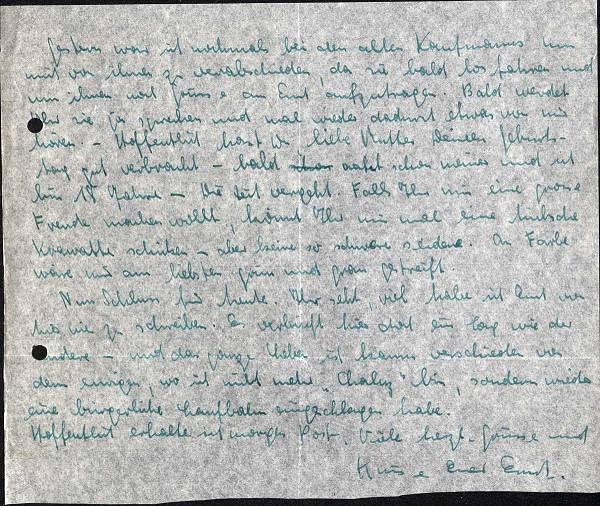 Gestern war ich nochmals bei den alten Kaufmanns um
mich von ihnen zu verabschieden, da sie bald los fahren und
um ihnen noch Grüsse an Euch aufzutragen. Bald werdet
Ihr sie ja sprechen und mal wieder dadurch etwas von mir
hören. – Hoffentlich hast Du liebe Mutter Deinen Geburts-
tag gut verbracht – bald schon meiner und ich
bin 18 Jahre – Die Zeit vergeht. Falls Ihr mir eine grosse
Freude machen wollt, könnt Ihr mir mal eine hübsche
Krawatte schicken – aber keine so schwere seidene. An Farbe
wäre mir am liebsten grün und grau gestreift.
Nun Schluss für heute. Ihr seht, viel habe ich Euch von
hier zu schreiben. Es verläuft hier doch ein Tag wie der
andere – und das ganze Leben ist kaum verschieden von
dem eurigen, wo ich nicht mehr "Chaluz" bin, sondern wieder
eine bürgerliche Laufbahn eingeschlagen habe.
Hoffentlich erhalte ich morgen Post. Viele herzl. Grüsse und
Küsse Euer Ernst.